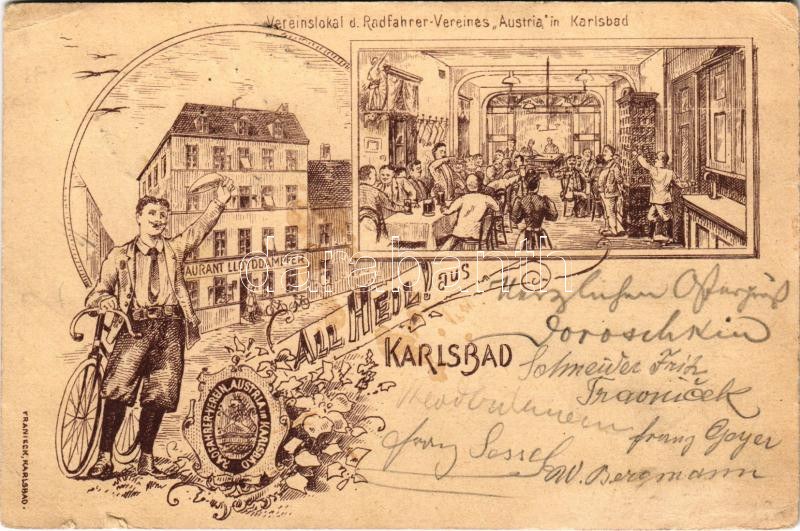 Vereinslokal d. Radfahrer-Vereines „Austria" in Karlsbad
AURANT LLOYDDAMPFER
ALL HEIL! aus
KARLSBAD
RADFAHRER-VEREIN "AUSTRIA" IN KARLSBAD
Herzlichen Ostergruß
Doroschkin
Schneider Fritz
Travniček
franz Geyer
franz
W. Bergmann
FRANIECK, KARLSBAD.
darabanth